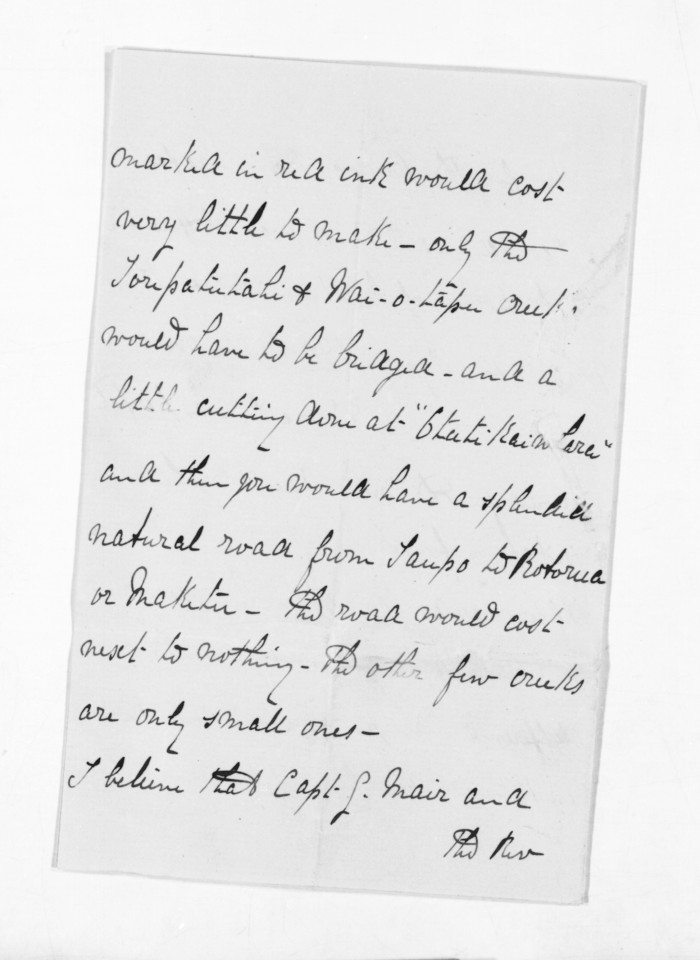 marked in red ink would cost
very little to make - only the
Torepatutahi & Wai-o-tāpu creek.
would have to be bridged - and a
little cutting done at "
and then you would have a splendid
natural road from Taupo to Rotorua
or Maketu - The road would cost
next to nothing - The other few creeks
are only small ones -
I believe that Capt. G. Mair and
The Rev